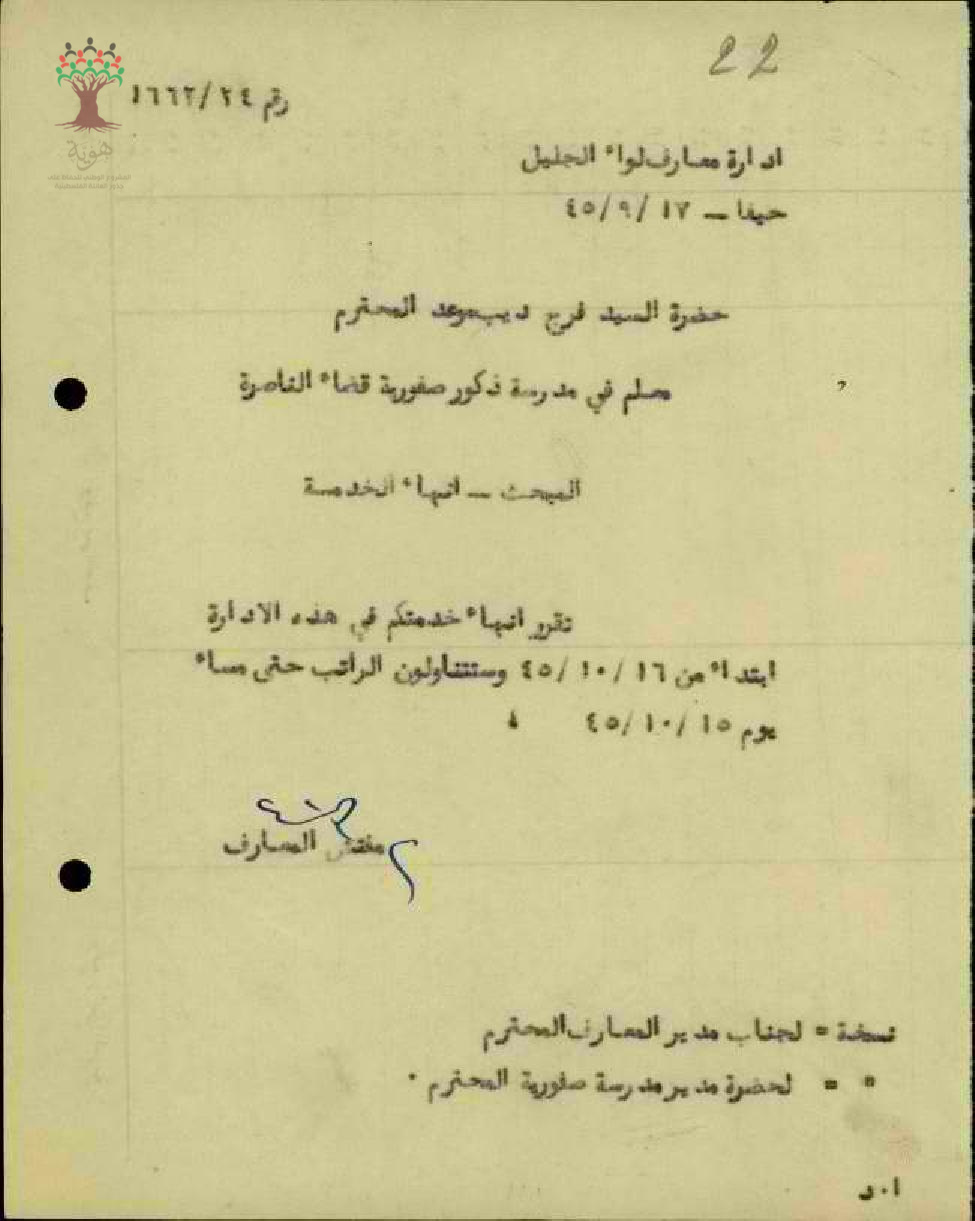 22
رقم ٢٤/١٦٦٢
هوية
ادارة معارف لواء الجليل
حيفا – ١٧/ ٩/ ٤٥
حضرة السيد فرج ديب موعد المحترم
معلم في مدرسة ذكور صفورية قضاء الناصرة
المبحث – انهاء الخدمة
تقرر انهاء خدمتكم في هذه الادارة
ابتداء من ١٦/ ١٠/ ٤٥ وستتناولون الراتب حتى مساء
يوم ١٥/ ١٠/ ٤٥
مفتش المعارف
نسخة = لجناب مدير المعارف المحترم
" = لحضرة مدير مدرسة صفورية المحترم .
ا.د